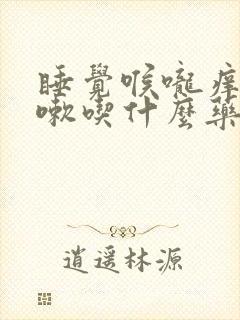 睡覺喉嚨痒
嗽喫什麼藥
逍遥林源